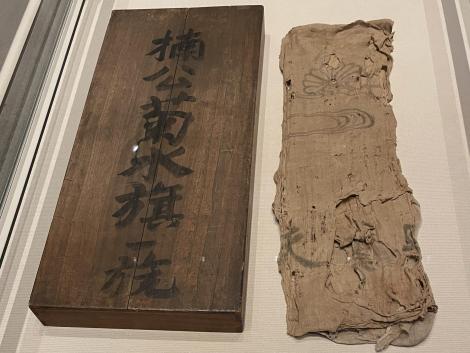 楠公菊水旗一旒